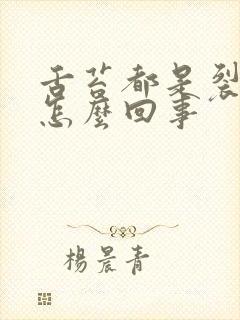 舌苔都是裂
怎麼回事
楊晨青